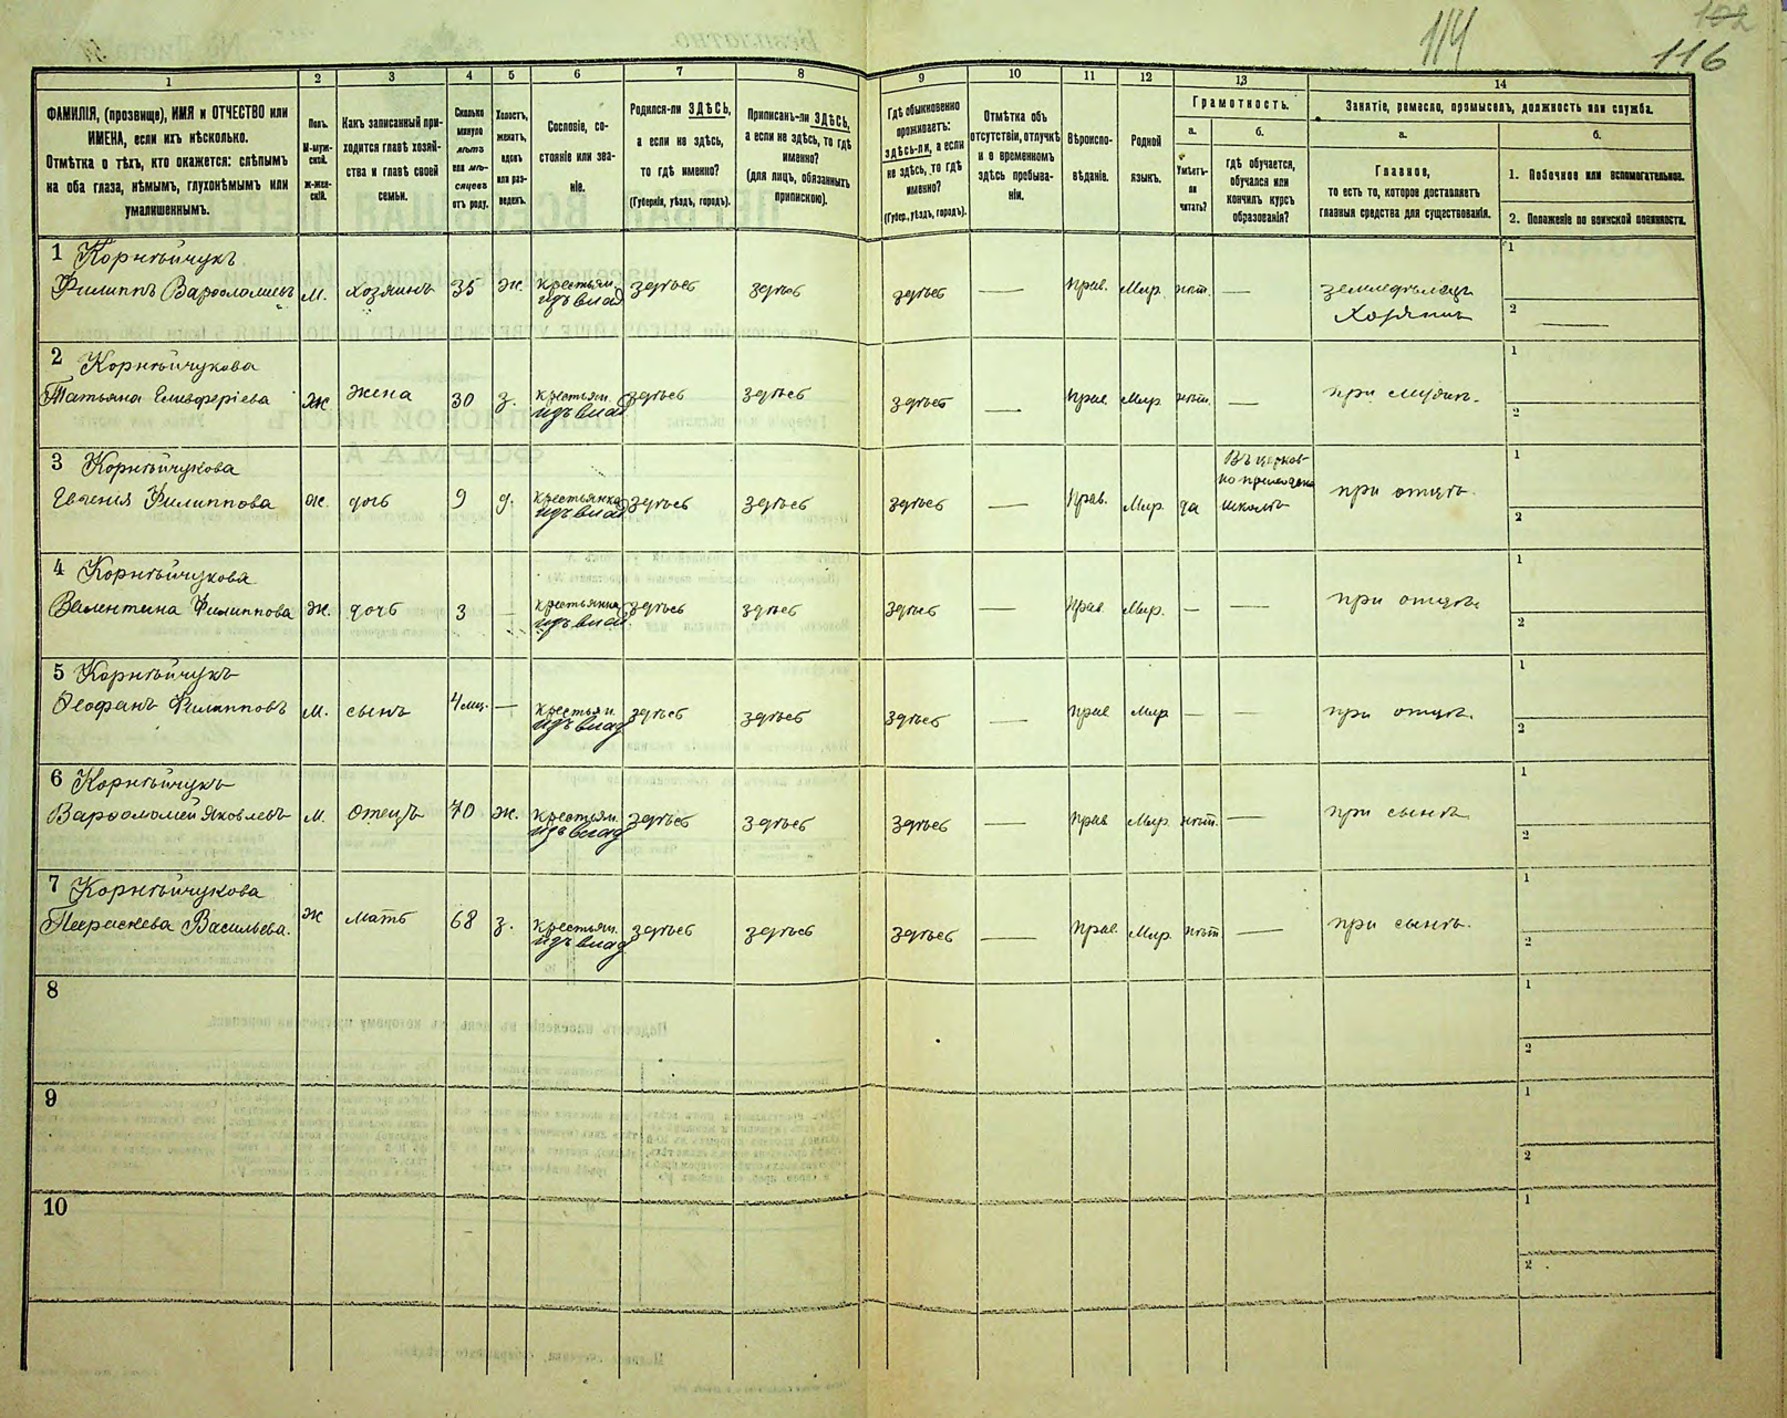 114
102
116
1
2
3
4
5
6
7
8
9
10
11
12
13
14
ФАМИЛІЯ, (прозвище), ИМЯ и ОТЧЕСТВО или
ИМЕНА, если ихъ нѣсколько.
Отмѣтка о тѣхъ, кто окажется: слѣпымъ
на оба глаза, нѣмымъ, глухонѣмымъ или
умалишеннымъ.
Полъ.
М-муж-
ской.
Ж-жен-
скій.
Какъ записанный при-
ходится главѣ хозяй-
ства и главѣ своей
семьи.
Сколько
минуло
лѣтъ
или мѣ-
сяцевъ
отъ роду.
Холостъ,
женатъ,
вдовъ
или раз-
веденъ.
Сословіе, со-
стояніе или зва-
ніе.
Родился-ли ЗДѢСЬ,
а если не здѣсь,
то гдѣ именно?
(Губернія, уѣздъ, городъ).
Приписанъ-ли ЗДѢСЬ,
а если не здѣсь, то гдѣ
именно?
(для лицъ, обязанныхъ
припискою).
Гдѣ обыкновенно
проживаетъ:
здѣсь-ли, а если
не здѣсь, то гдѣ
именно?
(Губер., уѣздъ, городъ).
Отмѣтка объ
отсутствіи, отлучкѣ
и о временномъ
здѣсь пребыва-
ніи.
Вѣроиспо-
вѣданіе.
Родной
языкъ.
Грамотность.
а.
б.
Умѣетъ-
ли
читать?
гдѣ обучается,
обучался или
кончилъ курсъ
образованія?
Занятіе, ремесло, промыселъ, должность или служба.
а.
б.
Главное,
то есть то, которое доставляетъ
главныя средства для существованія.
1. Побочное или вспомогательное.
2. Положеніе по воинской повинности.
1 Корнѣйчукъ
Филиппъ Варѳоломеевъ м. хозяинъ 35 ж. крестьян. здѣсь здѣсь здѣсь — прав. Мир. нѣт. — земледѣлецъ
изъ влад Хозяинъ
1
2 —
2 Корнѣйчукова
Татьяна Елевферіева ж жена 30 з. крестьян. здѣсь здѣсь здѣсь — прав. Мир нѣт. — при мужѣ.
изъ влад
1
2
3 Корнѣйчукова
Въ церков-
но приходск
Евгенія Филиппова ж. дочь 9 д. крестьянка здѣсь здѣсь здѣсь — прав. Мир. да школѣ при отцѣ.
изъ влад
1
2
4 Корнѣйчукова
Валентина Филиппова ж. дочь 3 — крестьянка здѣсь здѣсь здѣсь — прав. Мир. — — при отцѣ
изъ влад
1
2
5 Корнѣйчукъ
Ѳеофанъ Филипповъ м. сынъ 4 мц. — крестьян. здѣсь здѣсь здѣсь — прав Мир — — при отцѣ.
изъ влад
1
2
6 Корнѣйчукъ
Варѳоломей Яковлевъ м. отецъ 70 ж. крестьян. здѣсь здѣсь здѣсь — прав Мир. нѣт. — при сынѣ
изъ влад
1
2
7 Корнѣйчукова
Параскева Васильева. ж мать 68 з. крестьян. здѣсь здѣсь здѣсь — прав. Мир. нѣт — при сынѣ.
изъ влад
1
2
8
1
2
9
1
2
10
1
2